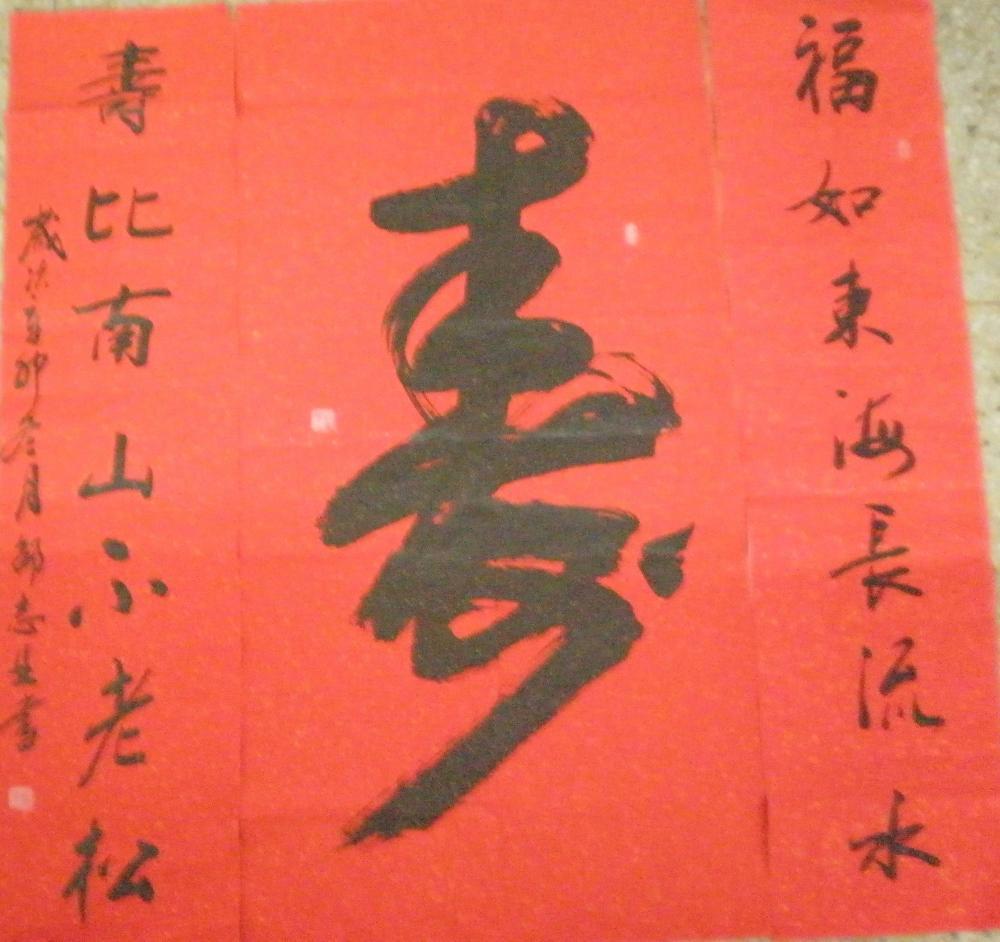 福如東海長流水
壽
壽比南山不老松
歲次 卯 月 志 書